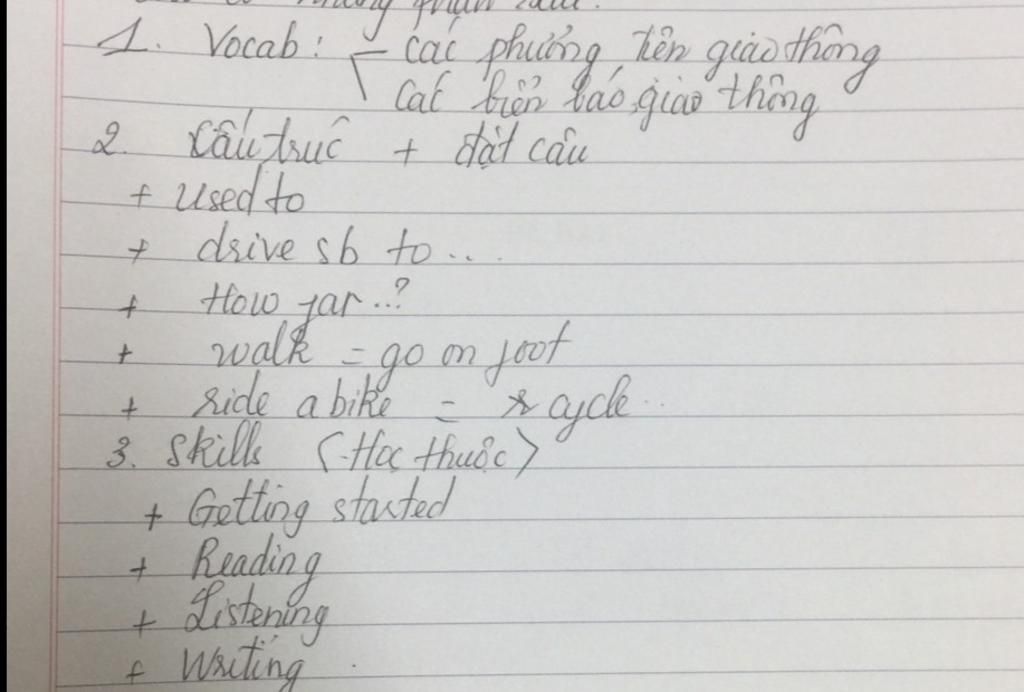 những phần sau:
1. Vocab: - các phương tiện giao thông
các biển báo giao thông
2. Cấu trúc + đặt câu
+ Used to
+ drive sb to ...
+ How far ..?
+ walk = go on foot
+ ride a bike = cycle..
3. Skills (Học thuộc)
+ Getting started
+ Reading
+ Listening
+ Writing